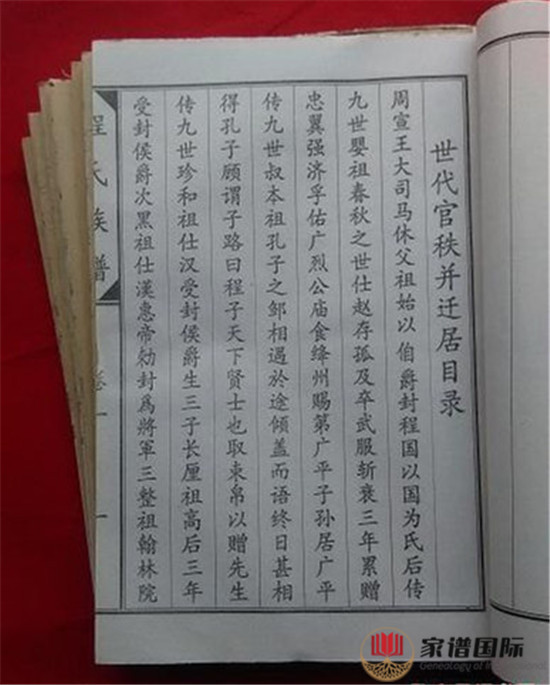 世代官秩并迁居目录
周宣王大司马休父祖始以伯爵封程国以国为氏后传
九世婴祖春秋之世仕赵存孤及卒武服斩衰三年累赠
忠翼强济孚佑广烈公庙食绛州赐第广平子孙居广平
传九世叔本祖孔子之邹相遇於途倾盖而语终日甚相
得孔子顾谓子路曰程子天下贤士也取束帛以赠先生
传九世珍和祖仕汉受封侯爵生三子长厘祖高后三年
受封侯爵次黑祖仕漢惠帝勑封爲將軍三整祖翰林院
程氏族譜
卷一
一
家谱国际